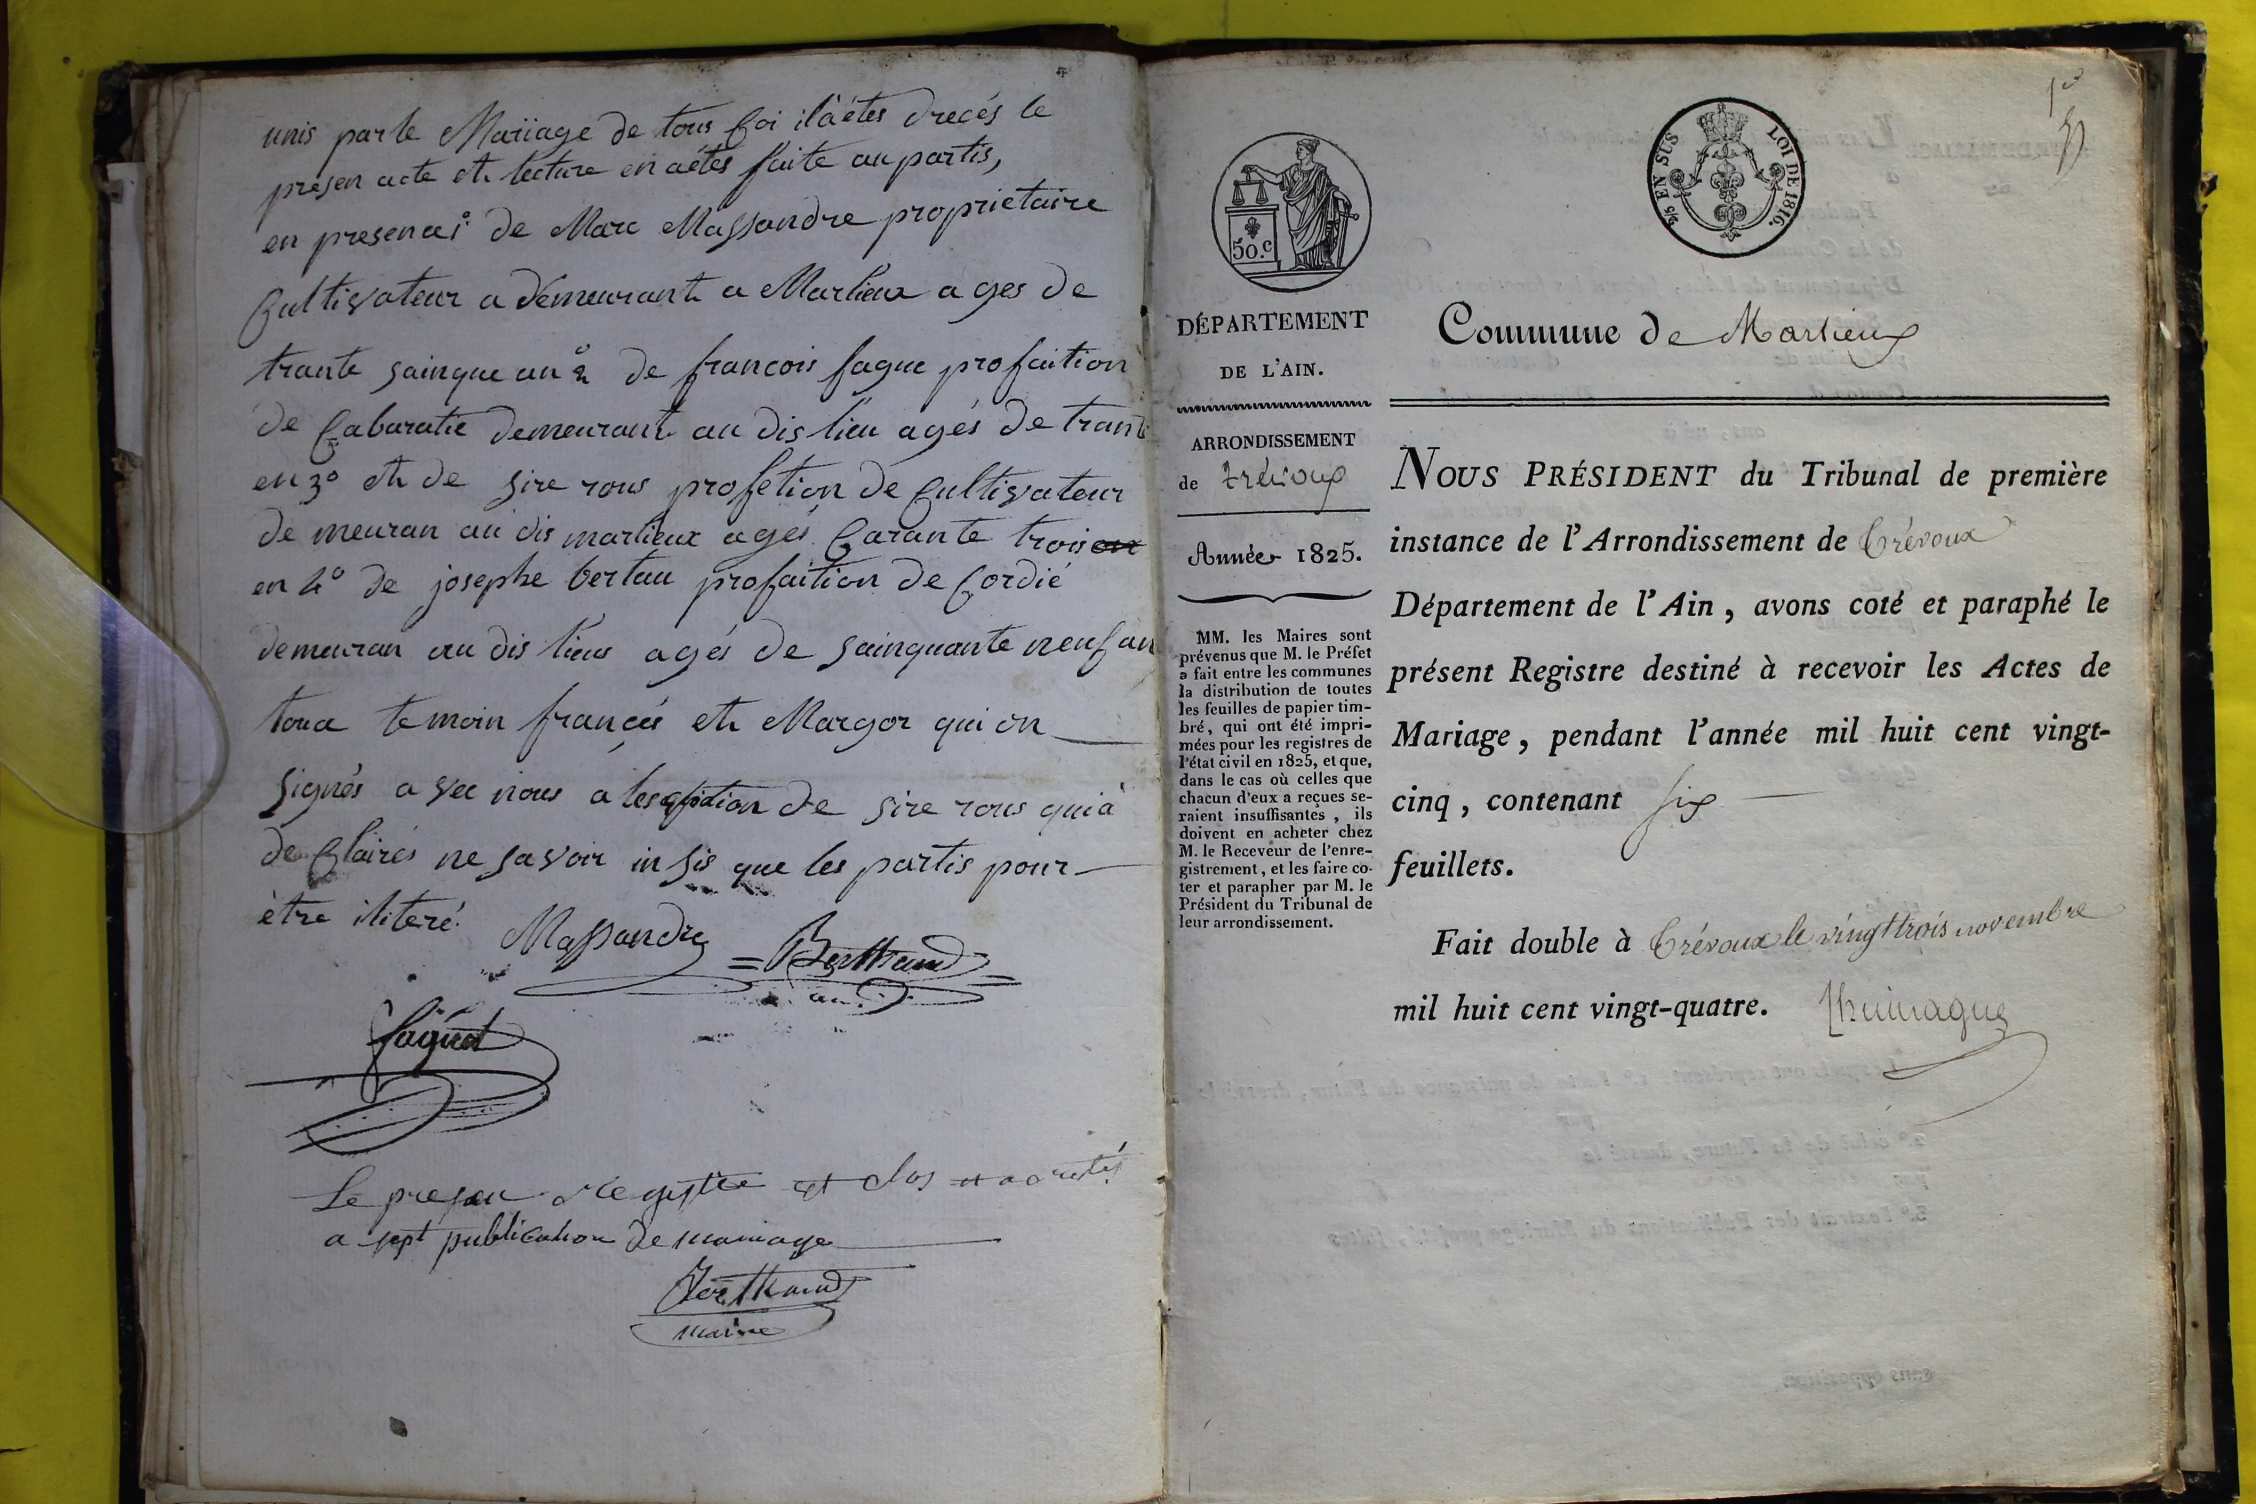 unis par le Mariiage de tous Coi ilà étes drecés le
presen acte et lecture en aétes faite au partis,
en presence 1° de Marc Massandre proprietaire
Cultivateur a démeurant a Marlieux ages de
trante sainque an 2° de francois fague profaition
de Cabaratie demeurant au dis lieu agés de trante
en 3° et de sire rous profetion de Cultivateur
de meuran au dis marlieux agés Carante trois
en 4° de josephe bertau profaition de Cordié
demeuran au dis lieus agés de sainquante neuf an
toua temoin français et Margor qui on
signés a vec nous a de sire rous qui à
de Clairés ne savoir in sis que les partis pour
être iliteré.
Massandre = Berthaud =
faguet
Le presen Regystre est clos et arrestés
a sept publication de mariage
Berthaud
maire
1er
50.c
2/5 EN SUS LOI DE 1816.
DÉPARTEMENT
DE L'AIN.
ARRONDISSEMENT
de trévoux
Année 1825.
MM. les Maires sont
prévenus que M. le Préfet
a fait entre les communes
la distribution de toutes
les feuilles de papier tim-
bré, qui ont été impri-
mées pour les registres de
l'état civil en 1825, et que,
dans le cas où celles que
chacun d'eux a reçues se-
raient insuffisantes, ils
doivent en acheter chez
M. le Receveur de l'enre-
gistrement, et les faire co-
ter et parapher par M. le
Président du Tribunal de
leur arrondissement.
Commune de Marlieux
NOUS PRÉSIDENT du Tribunal de première
instance de l'Arrondissement de Trévoux
Département de l'Ain, avons coté et paraphé le
présent Registre destiné à recevoir les Actes de
Mariage, pendant l'année mil huit cent vingt-
cinq, contenant six
feuillets.
Fait double à Trévoux le vingt trois novembre
mil huit cent vingt-quatre.